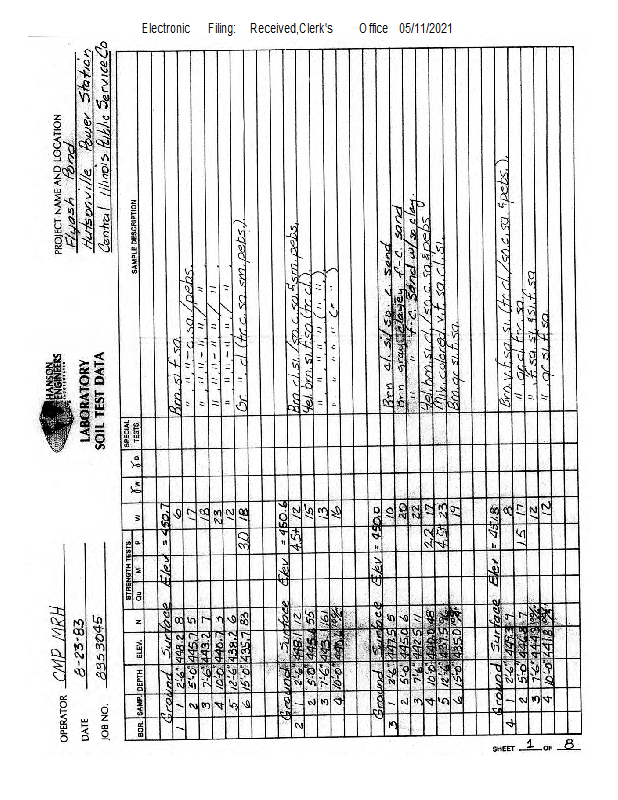 Electronic Filing: Received,Clerk's Office 05/11/2021
OPERATOR CMP MRH
DATE 8-23-83
JOB NO. 83S3045
HANSON ENGINEERS
LABORATORY
SOIL TEST DATA
PROJECT NAME AND LOCATION
Flyash Pond
Hutsonville Power Station
Central Illinois Public Service Co
BOR. SAMP. DEPTH ELEV. N STRENGTH TESTS Qu M P W γW γD SPECIAL TESTS SAMPLE DESCRIPTION
Ground Surface Elev = 450.7
1 1 2'-6" 448.2 8 6 Brn. si. f. sa.
2 5'-0" 445.7 5 17 " " " - c. sa. / pebs.
3 7'-6" 443.2 7 18 " " " - " " / "
4 10'-0" 440.7 3 23 " " " - " " / " .
5 12'-6" 438.2 6 12 " " " - " " / " .
6 15'-0" 435.7 83 3.0 18 Gr " . cl (tr. c. sa sm. pebs.).
Ground Surface Elev = 450.6
2 1 2'-6" 448.1 12 4.5+ 12 Brn. cl. si. / sn. c. sa. & sm. pebs.
2 5'-0" 55 15 Yel. brn. si. f. sa (tr. cl.)
3 7'-6" 161 13 " . " " . " ( " " )
4 10'-0" 16 " . " " " "
Ground Surface Elev = 450.0
3 1 2'-6" 447.5 5 10 Brn cl. si / so. c. sand
2 5'-0" 445.0 6 20 Brn gray clayey f-c. sand
3 7'-6" 442.5 11 22 " " f-c. sand w/ so clay.
4 10'-0" 440.0 48 2.2 17 Yel. brn. si. cl / sn. c. sa & pebs
5 12'-6" 437.5 4.5+ 23 Mlt. colored v. f. sa. cl. si.
6 15'-0" 435.0 19 Brn. gr. si. f. sa.
Ground Surface Elev = 451.8
4 1 2'-6" 449.3 9 8 Brn. v. f. sa. si. (tr. cl / sn. c. sa & pebs.).
2 5'-0" 7 1.5 17 " gr. cl. sa.
3 7'-6" 12 " . f. sa. si. & si. f. sa
4 10'-0" 441.8 12 " gr. si. f. sa.
SHEET 1 OF 8